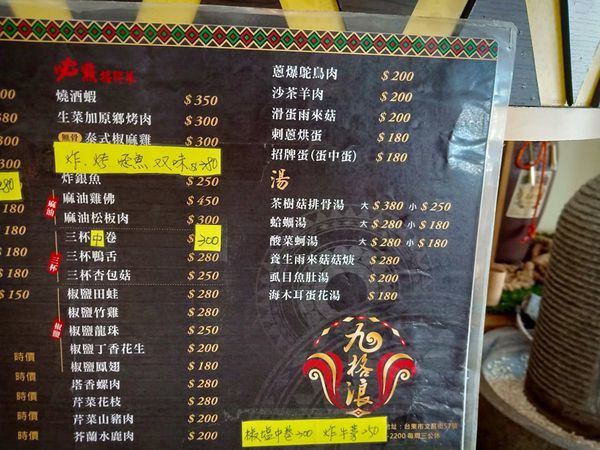 必點招牌菜
燒酒蝦 $350
生菜加原鄉烤肉 $300
無骨 泰式椒麻雞 $300
炸.烤 鱼 双味 $280
炸銀魚 $250
麻油
麻油雞佛 $450
麻油松板肉 $300
三杯
三杯中卷 $300
三杯鴨舌 $280
三杯杏包菇 $250
椒鹽
椒鹽田蛙 $280
椒鹽竹雞 $280
椒鹽龍珠 $250
椒鹽丁香花生 $200
椒鹽鳳翅 $180
塔香螺肉 $280
芹菜花枝 $280
芹菜山豬肉 $200
芥蘭水鹿肉 $200
蔥爆鴕鳥肉 $200
沙茶羊肉 $200
滑蛋雨來菇 $200
刺蔥烘蛋 $180
招牌蛋(蛋中蛋) $180
湯
茶樹菇排骨湯 大 $380 小 $250
蛤蠣湯 大 $280 小 $180
酸菜蚵湯 大 $280 小 $180
養生雨來菇菇煉 $280
虱目魚肚湯 $200
海木耳蛋花湯 $180
九格浪
地址:台東市文昌街57號
-2200 每周三公休
椒塩中卷300 炸牛蒡250
00
380
180
180
280
180
180
$180
$180
$150
時價
時價
時價
時價
時價